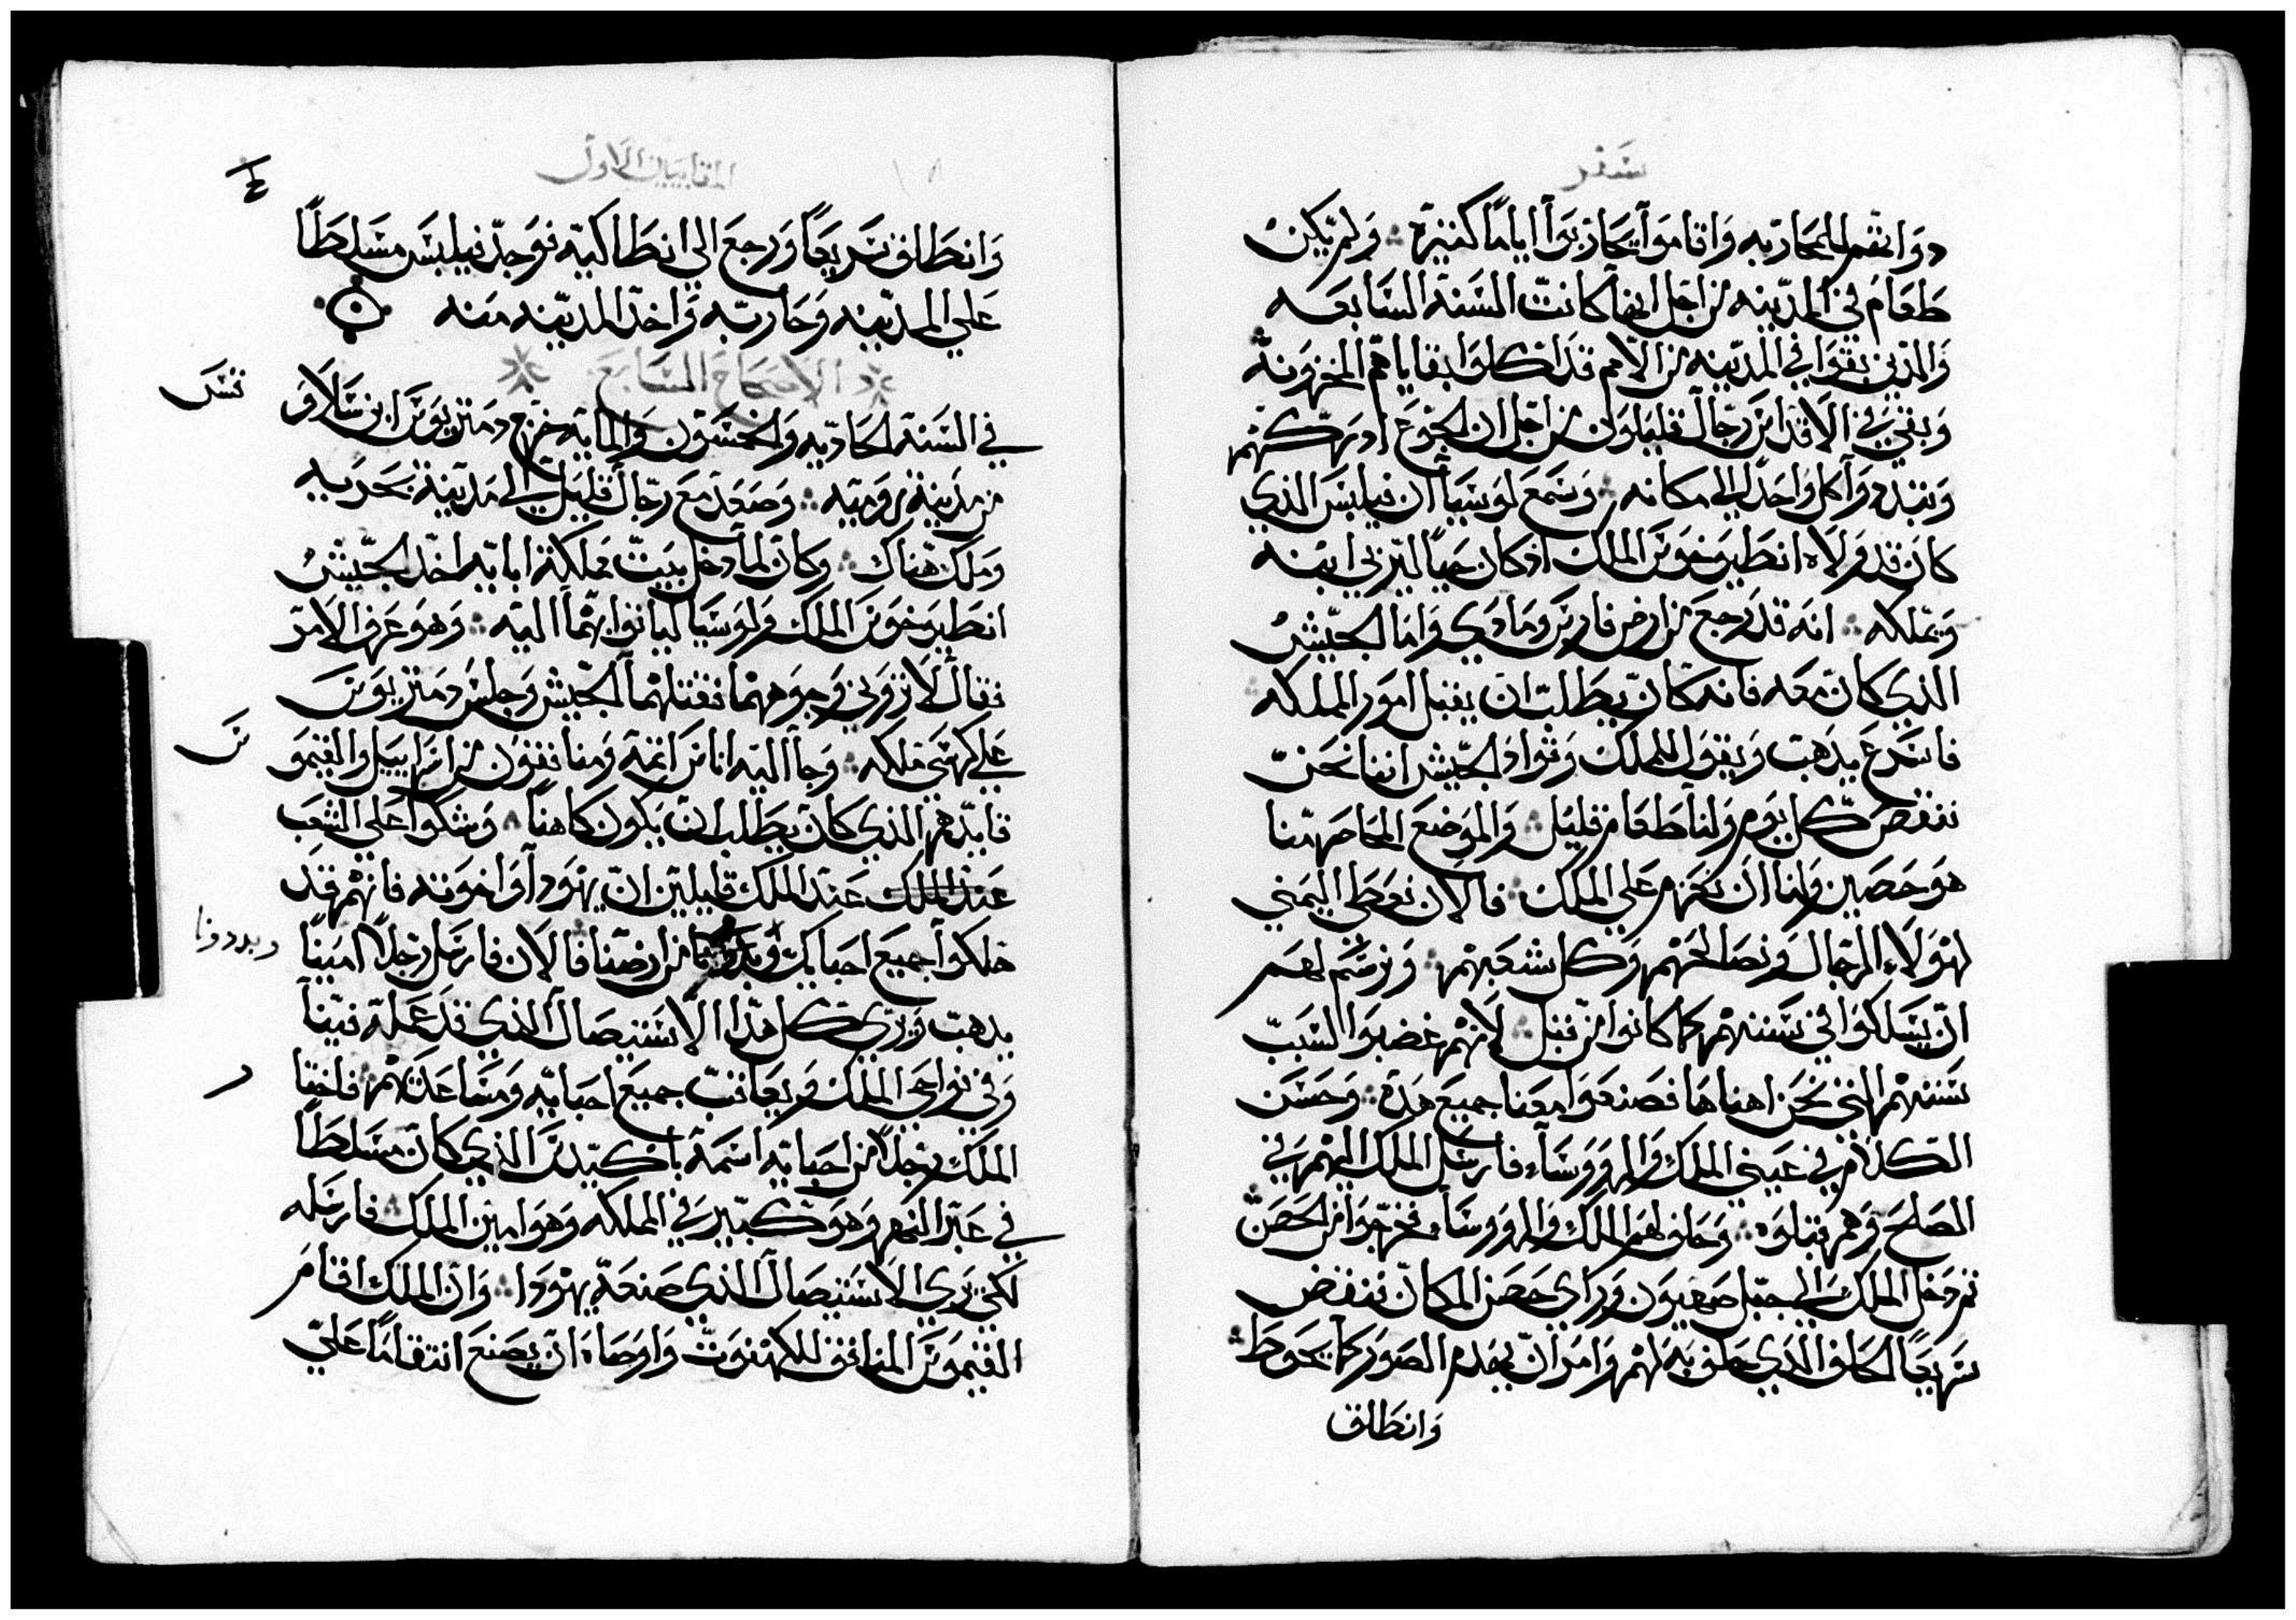 سفر
دواتهم لمحاربه واقاموا يحاربوا اياماً كثيرة ولم يكن
طعام في المدينه من اجل انها كانت السنة السابعه
والذين بقوا في المدينه من الامم قد اكلوا بقاياهم المخزونة
وبقي في الاقداس رجال قليلون من اجل ان الجوع ادركهم
وتبددوا كل واحد الي مكانه وسمع لوسيا ان فيلبس الذي
كان قد ولاه انطيوخوس الملك اد كان حياً ليربي ابنه
ويملكه انه قد رجع من ارض فارس ومادي واما الجيش
الذي كان معه فانه كان يطلب ان يقبل امور المملكه
فاسرع يدهب ويقول للملك وقواد الجيش اننا نحن
ننقص كل يوم ولنا طعام قليل والموضع المحاصر منا
هو حصين ولنا ان نحزم علي الملك فالان نعطي اليمني
لهولاء الرجال ونصالحهم وكل شعبهم ونرسم لهم
ان يسلكوا في سننهم كما كانوا من قبل لانهم غضبوا السبب
سننهم التي نحن اهناها فصنعوا معنا جميع هده وحسن
الكلام في عيني الملك والرووساء فارسل الملك اليهم في
الصلح وهم قبلوه وحلف لهم الملك والرووساء فخرجوا من الحصن
ثم دخل الملك الي جبل صهيون وراي حصن المكان فنقض
سريعاً الحلف الدي حلف به لهم وامر ان يهدم الصور كما يحوط
وانطلق
المقابيين الاول
وانطلق سريعاً ورجع الي انطاكيه فوجد فيلبس مسلطاً
علي المدينه وحاربه واخد المدينه منه
الاصحاح السابع
في السنة الحاديه والخمسون والمايه خرج دمتريوس ابن سلاو
من مدينة روميه وصعد مع رجال قليل الي مدينة بحريه
وملك هناك وكان لما دخل بيت مملكة ابايه اخد الجيش
انطيوخوس الملك ولوسيا لياتوا بهما اليه وهو عرف الامر
فقال لا تروني وجوههما فقتلهما الجيش وجلس دمتريوس
علي كرسي ملكه وجا اليه اناس اثمة ومنافقون من اسراييل والقيمو
قايدهم الذي كان يطلب ان يكون كاهناً وشكوا علي الشعب
عند الملك عند الملك قايلين ان يهودا واخوته فانهم قد
هلكوا جميع احبابك من ارضنا فالان فارسل رجلاً اميناً
وبددونا
يدهب ويري كل هدا الاستيصال الدي قد عمله فينا
وفي نواحي الملك ويعاقب جميع احبايه ومساعدتهم فاختا
الملك رجلاً من احبايه اسمه باكيدس الذي كان مسلطاً
في عبر النهر وهو كبير في المملكه وهو امين الملك فارسله
لكي يري الاستيصال الذي صنعه يهودا وان الملك اقام
القيموس المنافق للكهنوت واوصاه ان يصنع انتقاماً علي